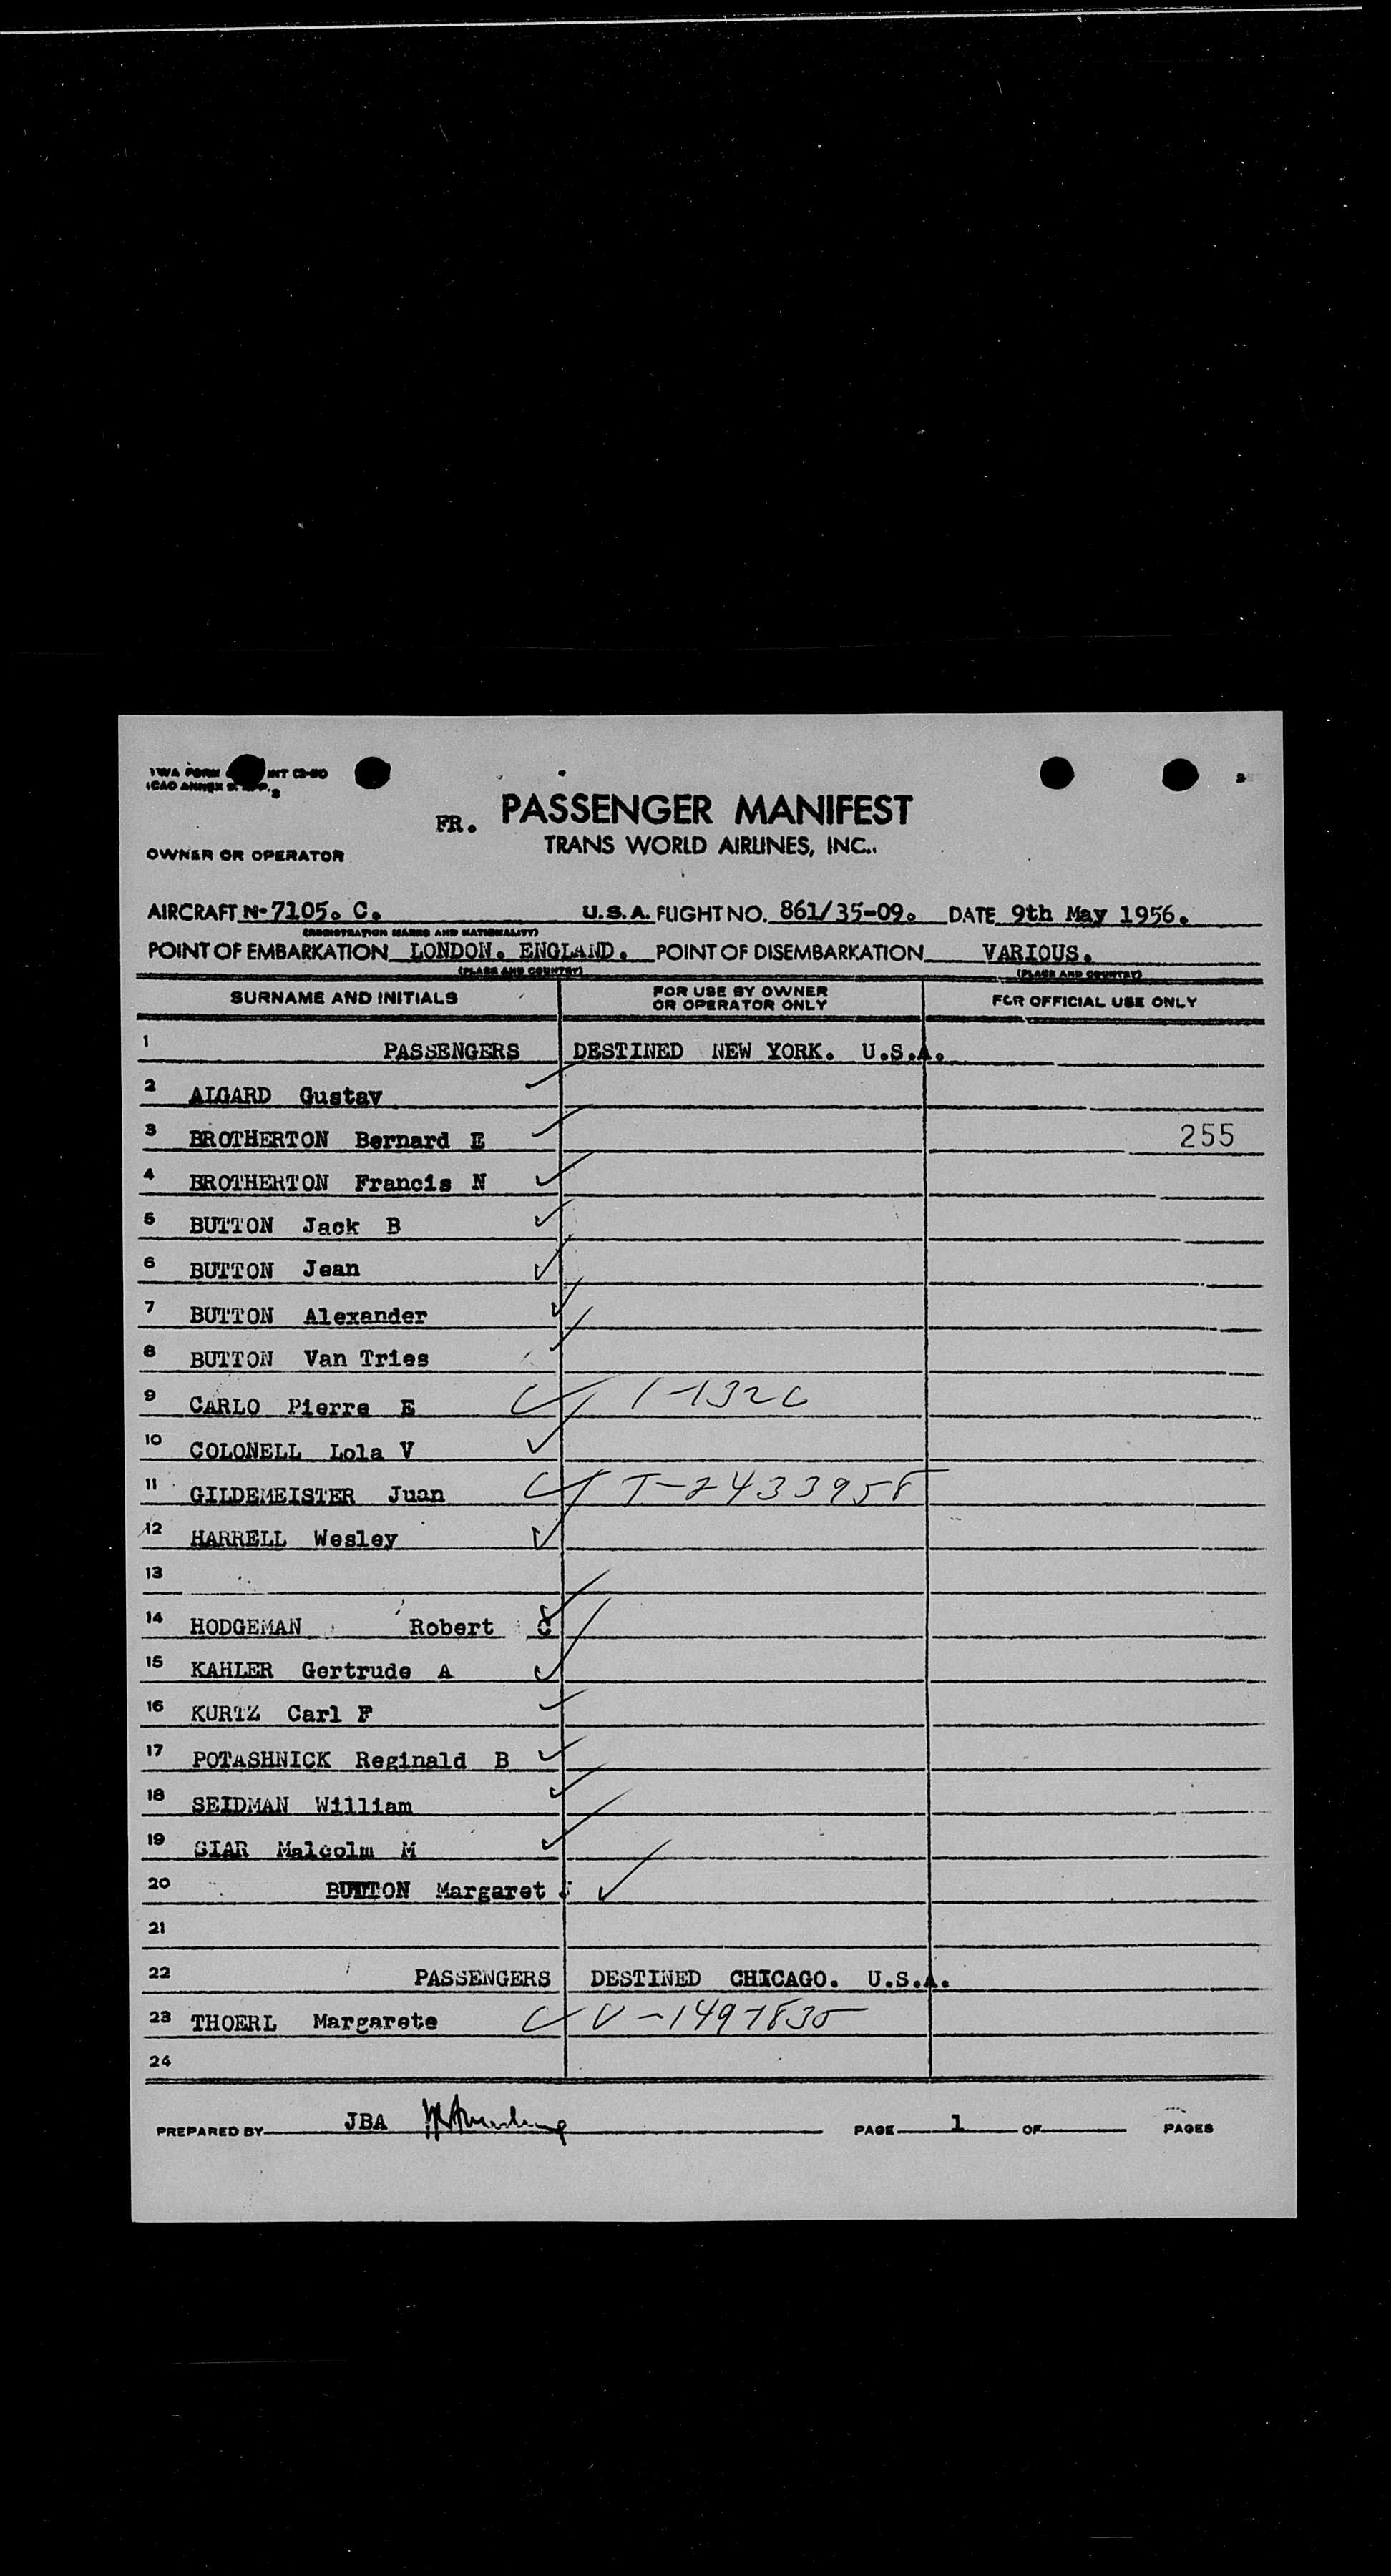 TWA FORM INT C2-50
ICAO ANNEX 9. APP. 3
FR. PASSENGER MANIFEST
TRANS WORLD AIRLINES, INC.
OWNER OR OPERATOR
AIRCRAFT N-7105. C. U.S.A. FLIGHT NO. 861/35-09. DATE 9th May 1956.
(REGISTRATION MARKS AND NATIONALITY)
POINT OF EMBARKATION LONDON. ENGLAND. POINT OF DISEMBARKATION VARIOUS.
(PLACE AND COUNTRY) (PLACE AND COUNTRY)
SURNAME AND INITIALS FOR USE BY OWNER OR OPERATOR ONLY FOR OFFICIAL USE ONLY
1 PASSENGERS DESTINED NEW YORK. U.S.A.
2 ALGARD Gustav
3 BROTHERTON Bernard E 255
4 BROTHERTON Francis N
5 BUTTON Jack B
6 BUTTON Jean
7 BUTTON Alexander
8 BUTTON Van Tries
9 CARLO Pierre E 1-132C
10 COLONELL Lola V
11 GILDEMEISTER Juan T-2433958
12 HARRELL Wesley
13
14 HODGEMAN Robert C
15 KAHLER Gertrude A
16 KURTZ Carl F
17 POTASHNICK Reginald B
18 SEIDMAN William
19 SIAR Malcolm M
20 BUTTON Margaret
21
22 PASSENGERS DESTINED CHICAGO. U.S.A.
23 THOERL Margarete V-1497835
24
PREPARED BY JBA PAGE 1 OF PAGES